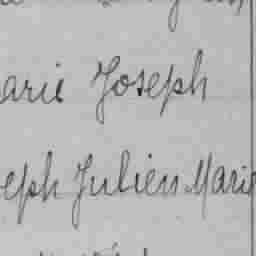 arie Joseph
eph Julien Marie